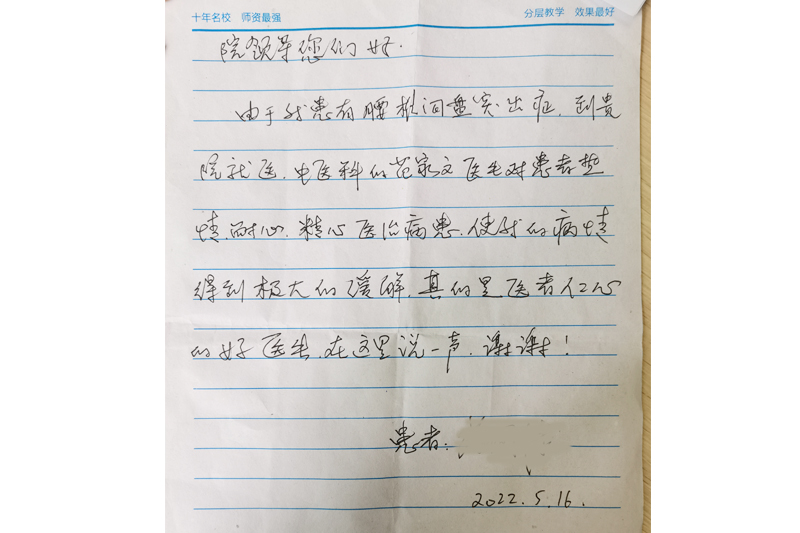 十年名校 师资最强 分层教学 效果最好
院领导您们好.
由于我患有腰椎间盘突出症.到贵
院就医.中医科的范家文医生对患者热
情.耐心.精心医治病患.使我的病情
得到极大的缓解.真的是医者仁心
的好医生.在这里说一声.谢谢!
患者:
2022.5.16.